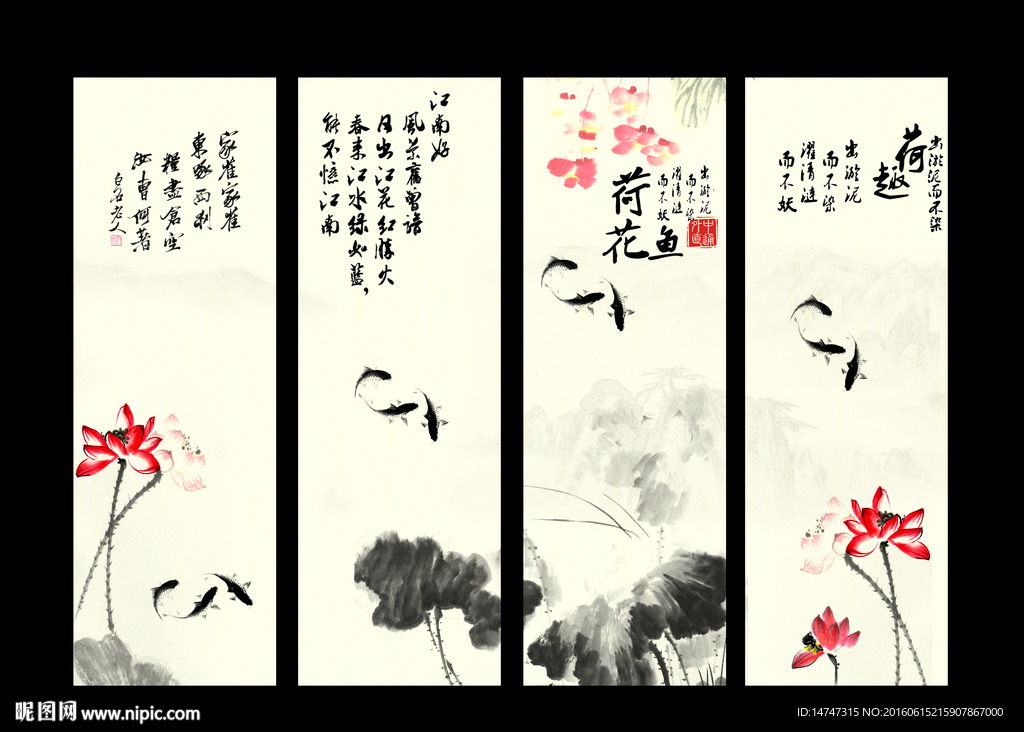 家雀家雀
東啄西剥
糧盡倉空
汝曹何著
白石老人
江南好
風景舊曾諳
日出江花红勝火
春来江水绿如藍，
能不憶江南
出淤泥
而不染
濯清涟
而不妖
荷花
鱼
中通
外直
出淤泥而不染
荷趣
出淤泥
而不染
濯清涟
而不妖
昵图网 www.nipic.com
ID:14747315 NO:20160615215907867000